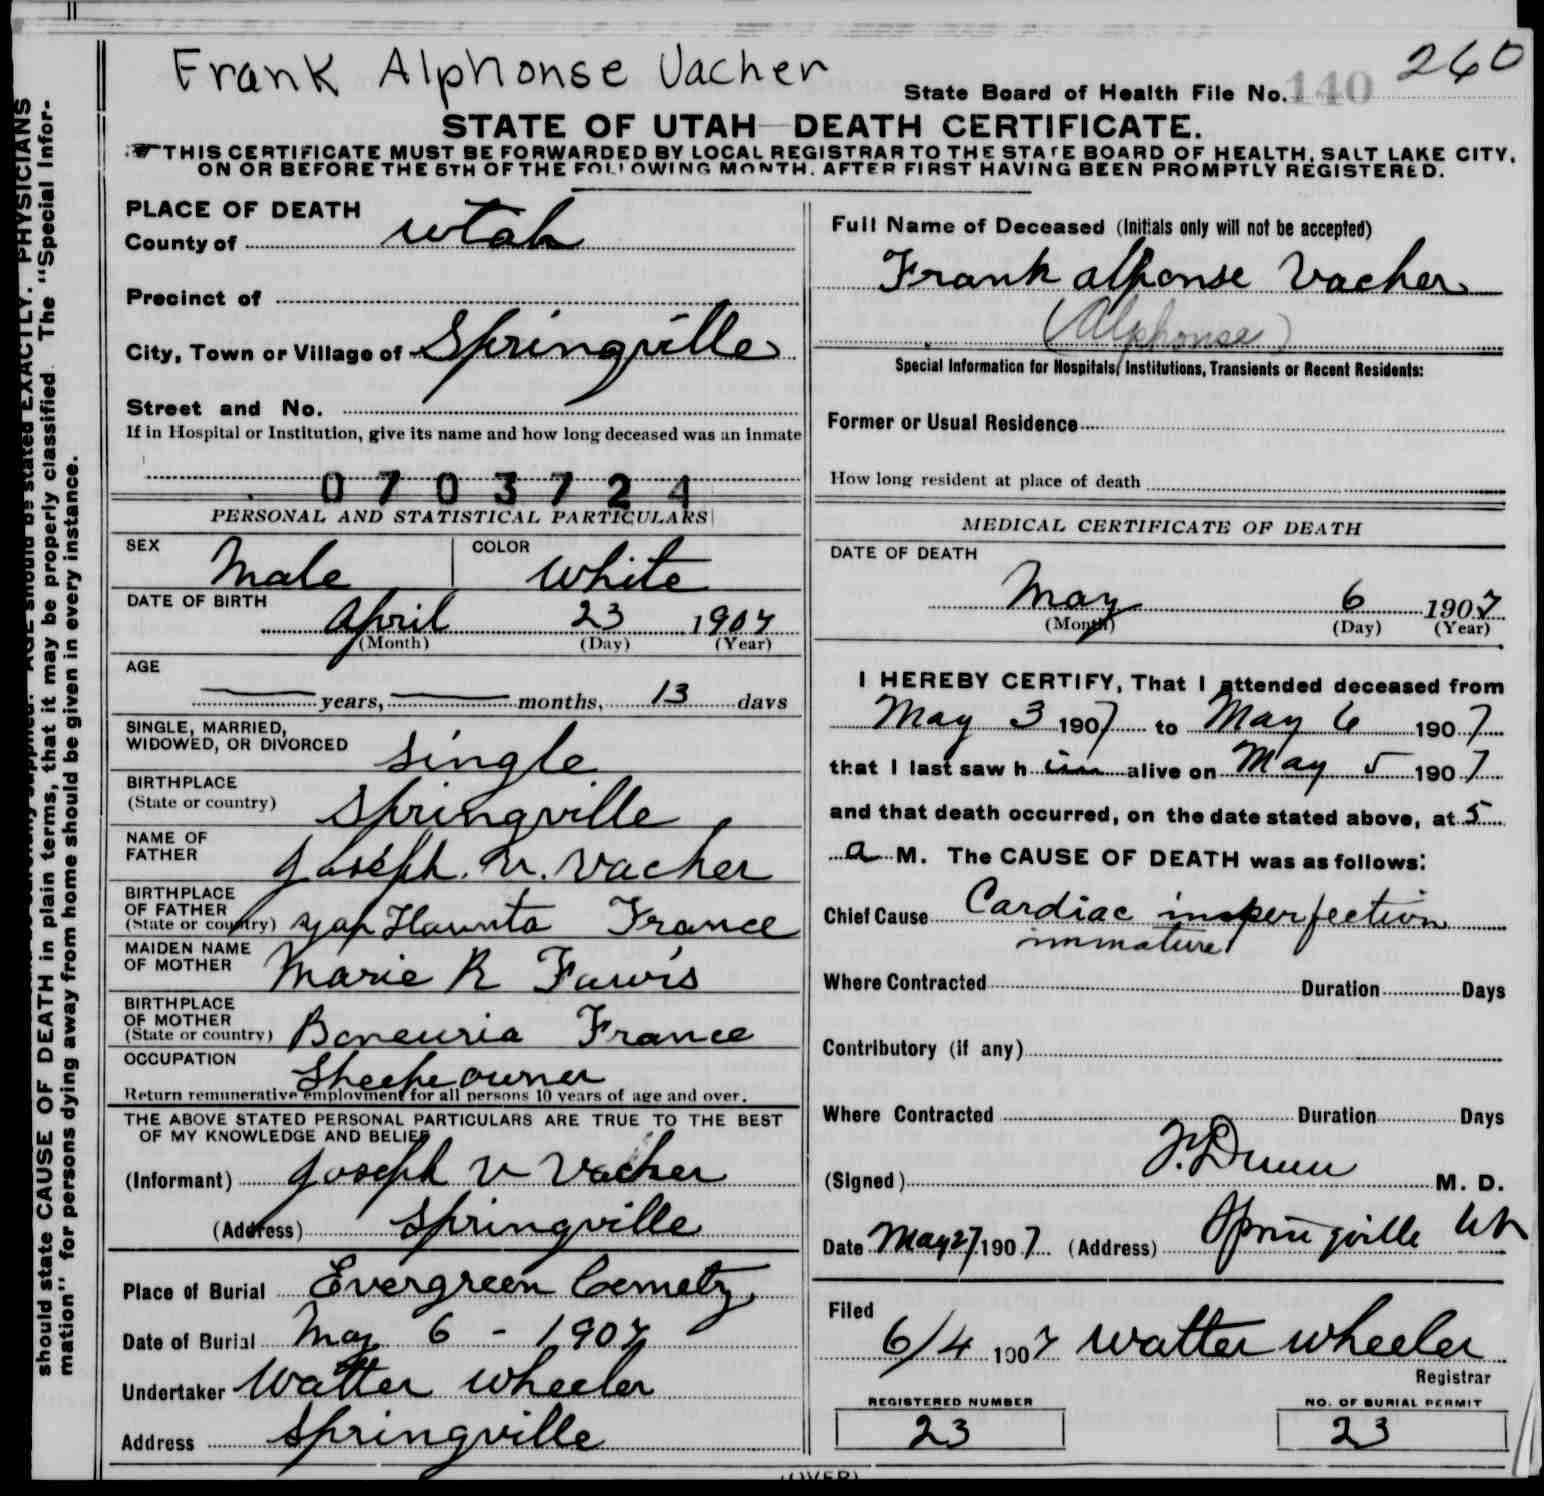 Frank Alphonse Vacher
260
State Board of Health File No. 140
STATE OF UTAH—DEATH CERTIFICATE.
THIS CERTIFICATE MUST BE FORWARDED BY LOCAL REGISTRAR TO THE STATE BOARD OF HEALTH, SALT LAKE CITY,
ON OR BEFORE THE 5TH OF THE FOLLOWING MONTH, AFTER FIRST HAVING BEEN PROMPTLY REGISTERED.
should state CAUSE OF DEATH in plain terms, that it may be properly classified. The "Special Infor-
mation" for persons dying away from home should be given in every instance.
AGE should be stated EXACTLY. PHYSICIANS
PLACE OF DEATH
County of Utah
Precinct of
City, Town or Village of Springville
Street and No.
If in Hospital or Institution, give its name and how long deceased was an inmate
0703724
PERSONAL AND STATISTICAL PARTICULARS
SEX Male COLOR White
DATE OF BIRTH
April 23 1907
(Month) (Day) (Year)
AGE
years, months, 13 days
SINGLE, MARRIED,
WIDOWED, OR DIVORCED Single
BIRTHPLACE
(State or country) Springville
NAME OF
FATHER Joseph. V. Vacher
BIRTHPLACE
OF FATHER
(State or country) France
MAIDEN NAME
OF MOTHER Marie R
BIRTHPLACE
OF MOTHER
(State or country) France
OCCUPATION
Sheepe owner
Return remunerative employment for all persons 10 years of age and over.
THE ABOVE STATED PERSONAL PARTICULARS ARE TRUE TO THE BEST
OF MY KNOWLEDGE AND BELIEF
(Informant) Joseph V Vacher
(Address) Springville
Place of Burial Evergreen Cemetry
Date of Burial May 6 - 1907
Undertaker Walter Wheeler
Address Springville
Full Name of Deceased (Initials only will not be accepted)
Frank Alponse Vacher
(Alphonse)
Special Information for Hospitals, Institutions, Transients or Recent Residents:
Former or Usual Residence
How long resident at place of death
MEDICAL CERTIFICATE OF DEATH
DATE OF DEATH
May 6 1907
(Month) (Day) (Year)
I HEREBY CERTIFY, That I attended deceased from
May 3 1907 to May 6 1907
that I last saw h im alive on May 5 1907
and that death occurred, on the date stated above, at 5
a M. The CAUSE OF DEATH was as follows:
Chief Cause Cardiac imperfection
immature
Where Contracted Duration Days
Contributory (if any)
Where Contracted Duration Days
(Signed) F. Dunn M. D.
Date May 27 1907 (Address) Springville Ut
Filed
6/4 1907 Walter Wheeler
Registrar
REGISTERED NUMBER
23
NO. OF BURIAL PERMIT
23
(OVER)